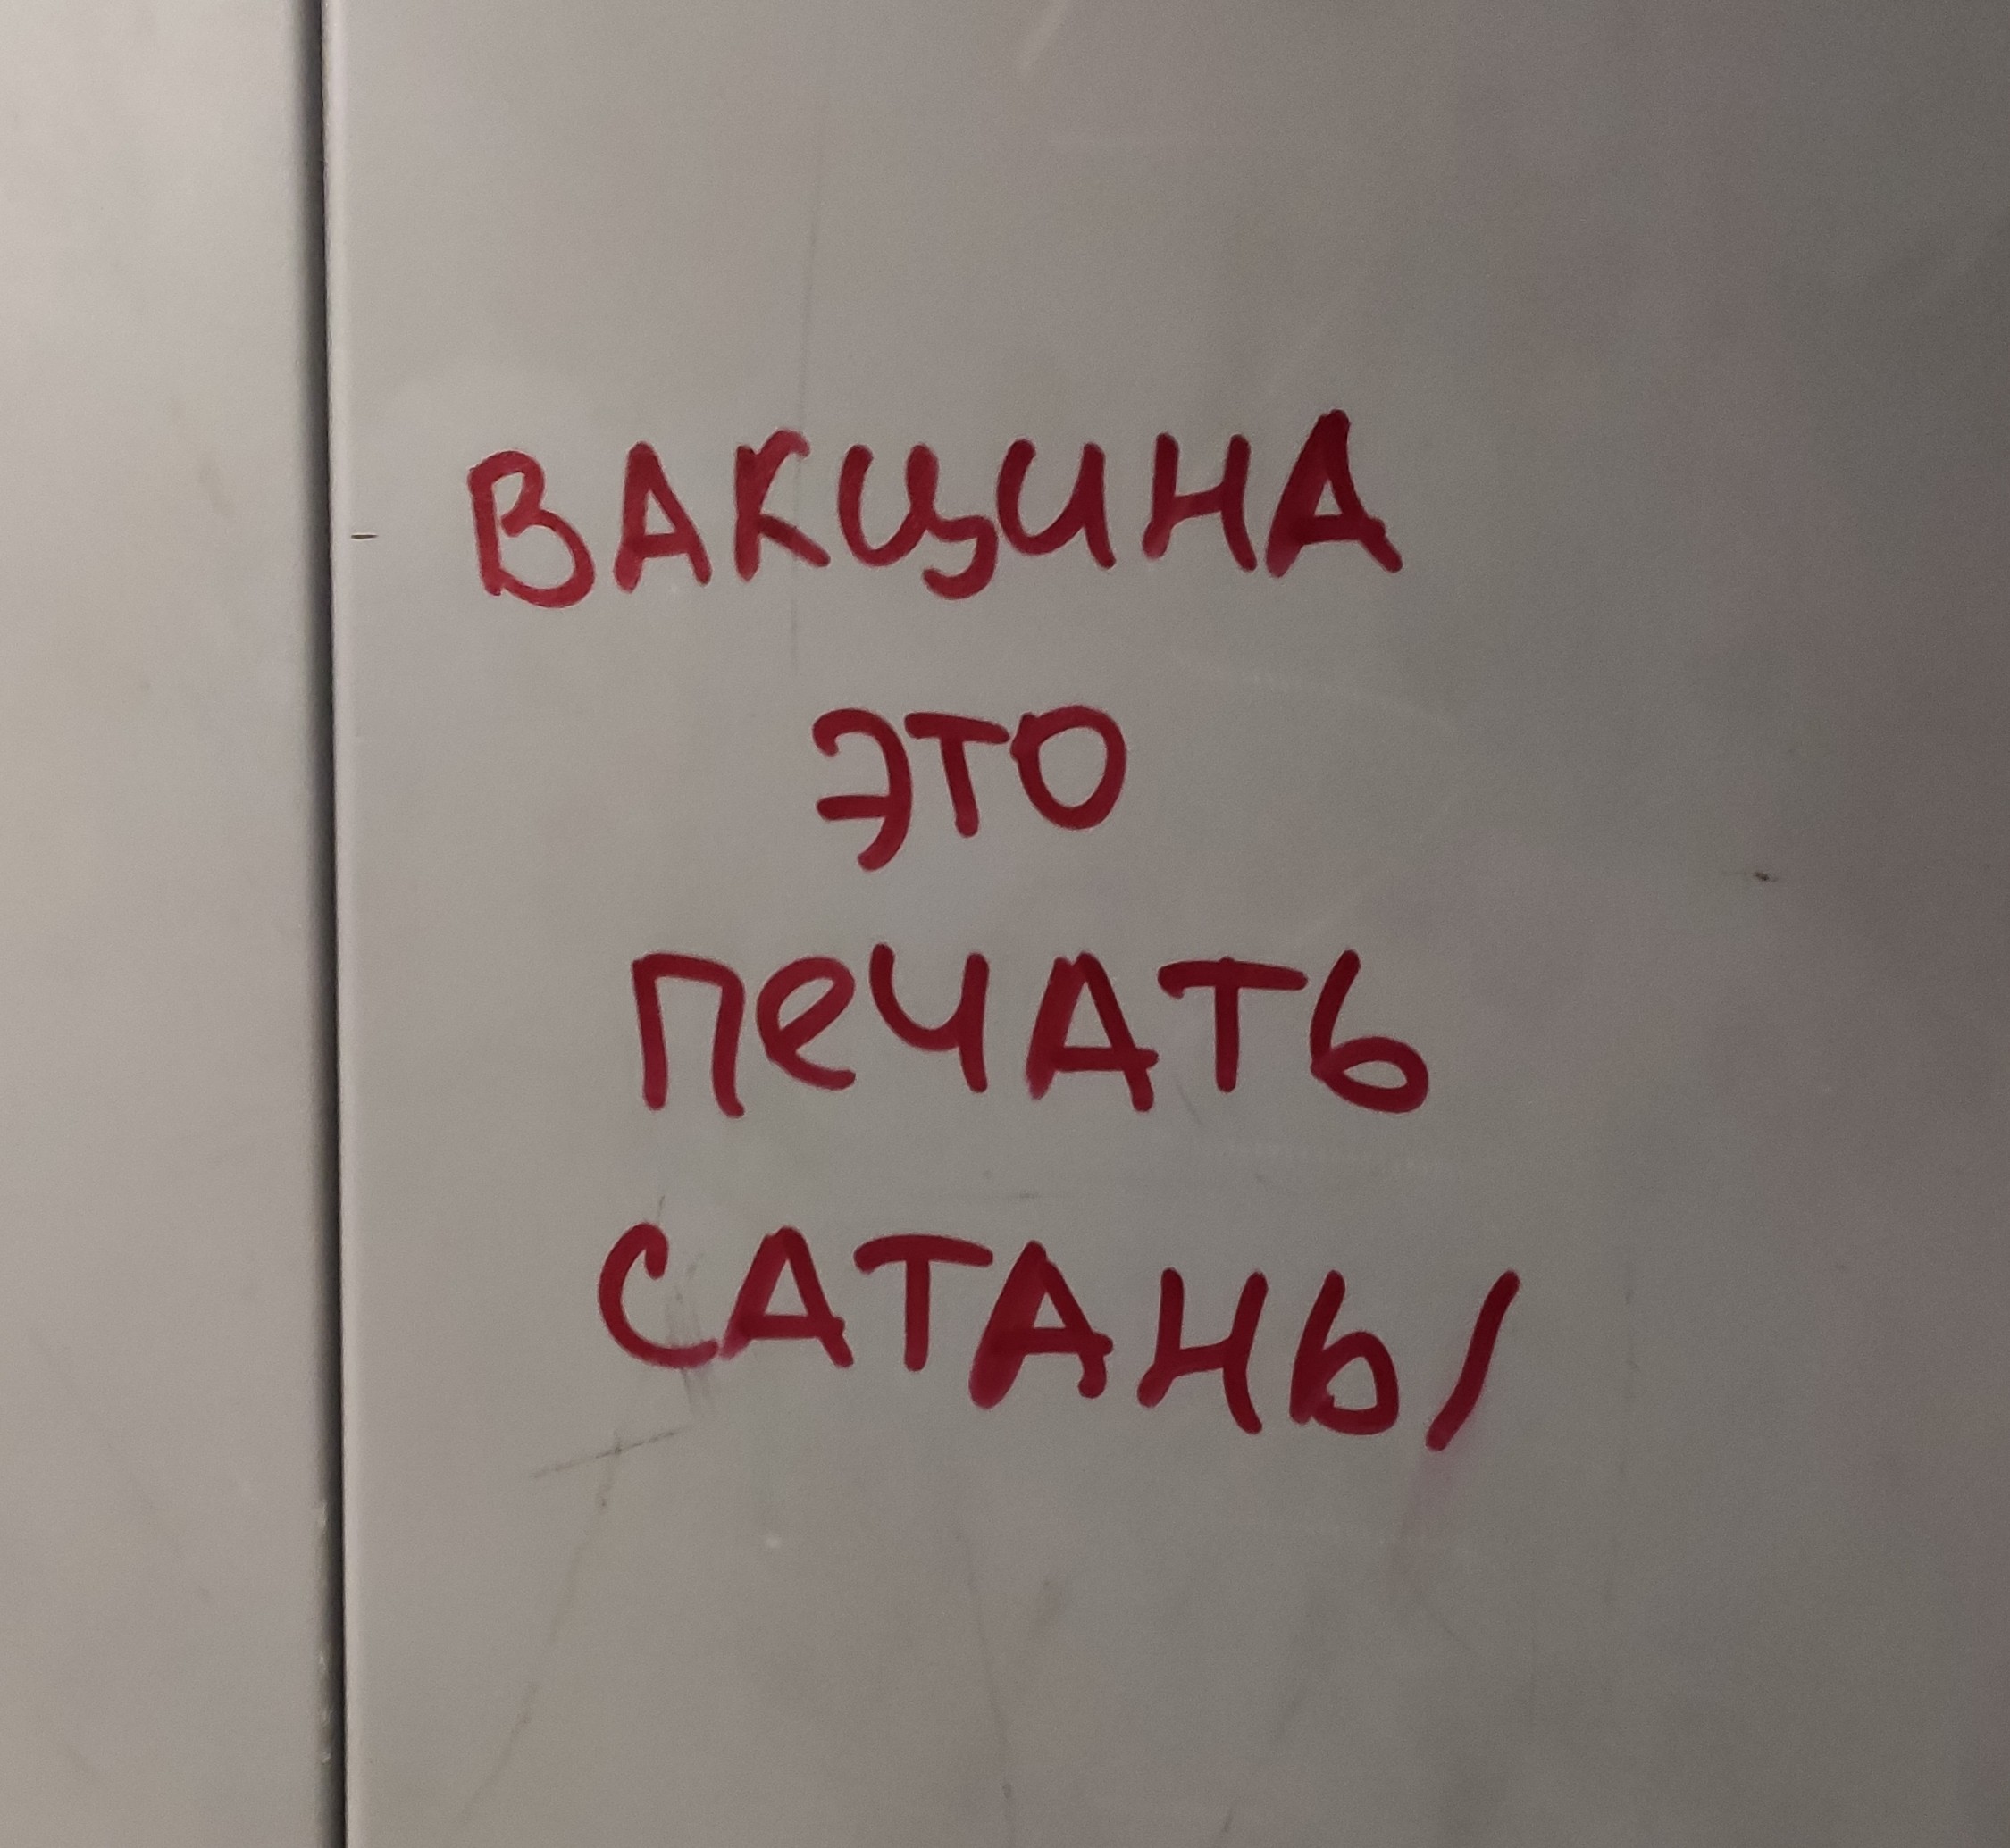 ВАКЦИНА
ЭТО
ПеЧАТЬ
САТАНЫ